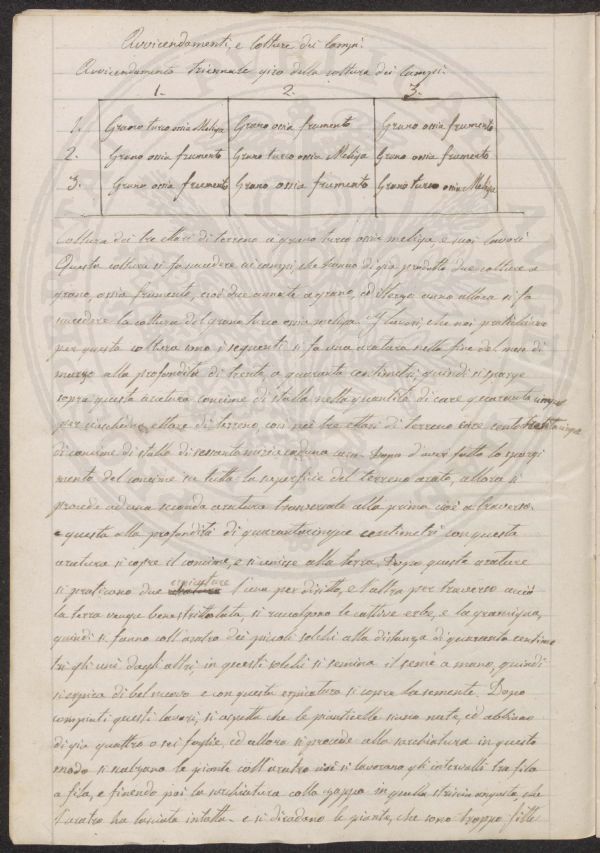 Avvicendamenti, e Colture dei Campi.
Avvicendamento triennale giro della coltura dei Campi.
1. 2. 3.
1. Grano turco ossia Meliga Grano ossia frumento Grano ossia frumento
2. Grano ossia frumento Grano turco ossia Meliga Grano ossia frumento
3. Grano ossia frumento Grano ossia frumento Grano turco ossia Meliga
Coltura dei tre ettari di terreno a grano turco ossia meliga, e suoi lavori
Questa coltura si fa succedere ai campi, che hanno di già prodotto due colture a
grano, ossia frumento, cioè due annate a grano, ed il terzo anno allora si fa
succedere la coltura del grano turco ossia meliga. I lavori, che noi pratichiamo
per questa coltura sono i seguenti si fa una aratura nella fine del mese di
marzo alla profondità di trenta a quaranta centimetri, quindi si sparge
sopra questa aratura concime di stalla nella quantità di care quaranta cinque
per ciascheduno ettare di terreno, così nei tre ettari di terreno care cento trenta cinque
di concime di stalla di sessanta mirie caduna cara. Dopo d'aver fatto lo spargi
mento del concime su tutta la superficie del terreno arato, allora si
procede ad una seconda aratura trasversale alla prima cioè a traverso.
e questa alla profondità di quarantacinque centimetri con questa
aratura si copre il concime, e si unisce alla terra, Dopo queste arature
si praticano due arature erpicature l'una per diritto, e l'altra per traverso acciò
la terra venga bene stritolata, si raccolgono le cattive erbe, e la gramigna,
quindi si fanno coll'aratro dei piccoli solchi alla distanza di quaranta centime
tri gli uni dagli altri, in questi solchi si semina il seme a mano, quindi
si erpica di bel nuovo e con questa erpicatura si copre la semente. Dopo
compiuti questi lavori, si aspetta che le pianticelle siano nate, ed abbiano
di già quattro o sei foglie, ed allora si procede alla sarchiatura in questo
modo si scalzano le piante coll'aratro così si lavorano gli intervalli tra fila
a fila, e finendo poi la sarchiatura colla zappa in quella striscia angusta, che
l'aratro ha lasciata intatta e si diradano le piante, che sono troppo fitte